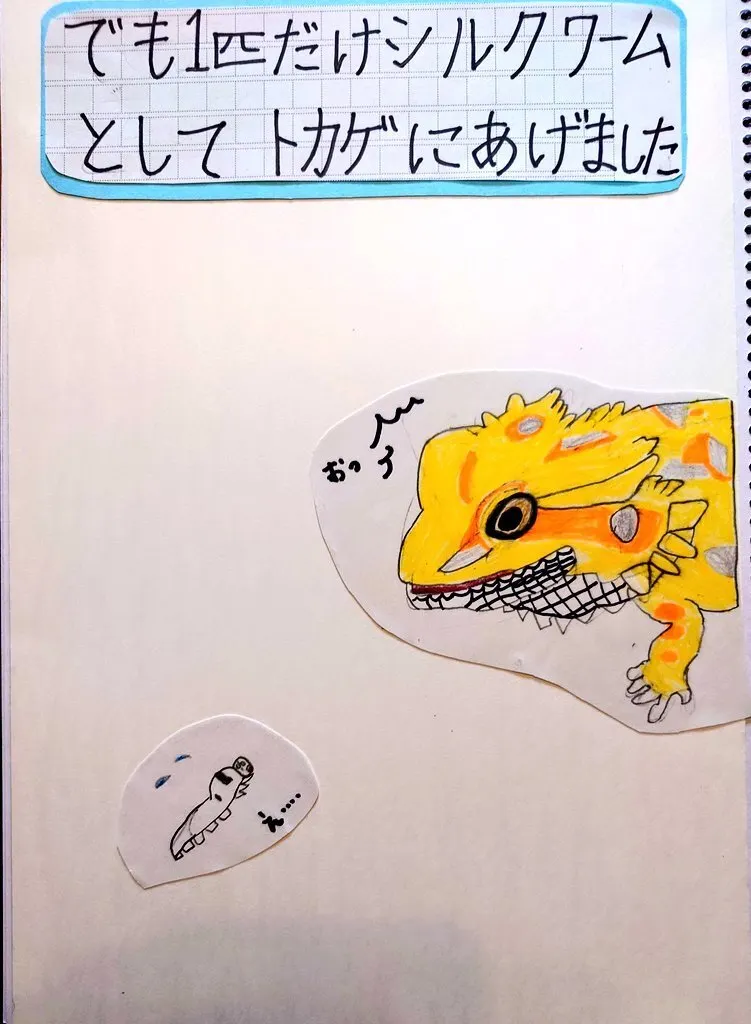 でも1匹だけシルクワーム
としてトカゲにあげました
おっ
え....